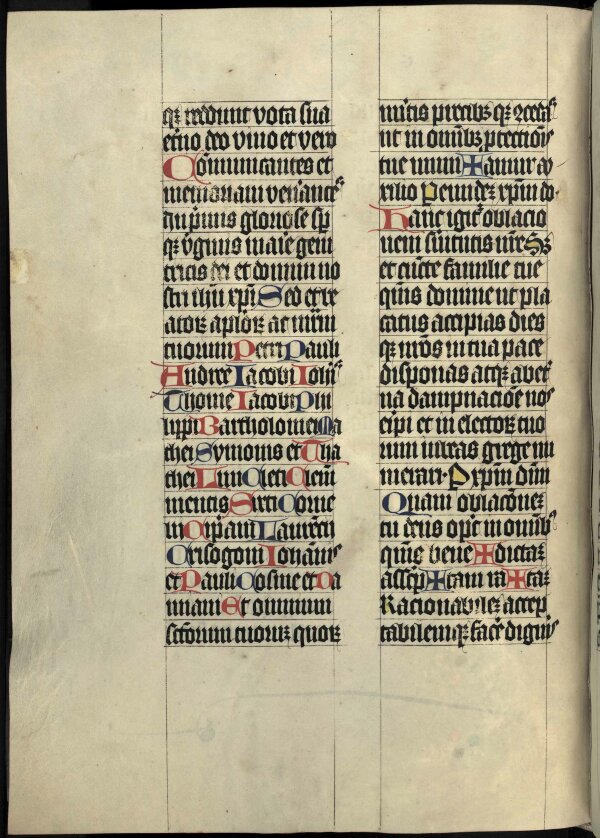 q̄ reddunt vota sua
et̄no deo vivo et vero
Cōmunicantes et
memoriam ven̄ante⁊
in p̄mis glorīose sp̄
q̄ v̄ginis marie geni
tricis dei et domini no
stri ih̄u xp̄i Sed et be
atoꝝ ap̄loꝝ ac mr̄m
tuorum Petri Pauli
Andree Iacobi Ioh̄is
Thome Iacobi Phi
lippi Bartholomei Ma
thei Symonis et Tha
thei Lini Cleti Clem̄
mentis Sixti Corne
lii Cip̄ani Laurēcii
Crisogoni Iohānis
et Pauli Cosme et Da
miani Et omnium
sctōrum tuorꝝ quoꝝ
mītis precibꝫ qꝫ ꝯcedas
ut in omībꝫ ꝓtectiōis
tue muni✠amur au
xilio Per eundeꝫ xp̄m do
Hanc igit̄ oblacio
nem s̄vitutis n̄re Sꝫ
et cūcte familie tue
q̄s domine ut pla
catus accipias dies
qꝫ nr̄os in tua pace
disponas atqꝫ ab et̄
na dampnaciōe nos
eripi et in electoꝝ tuo
rum iubeas grege nu
merari P xp̄m dn̄m
Quam oblacōneꝫ
tu deus op̄c in omībꝫ
q̄s bene✠dictaꝫ
asc̄p✠tam ra✠taꝫ
Racionabileꝫ accep
tabilemqꝫ fac̄e digneris